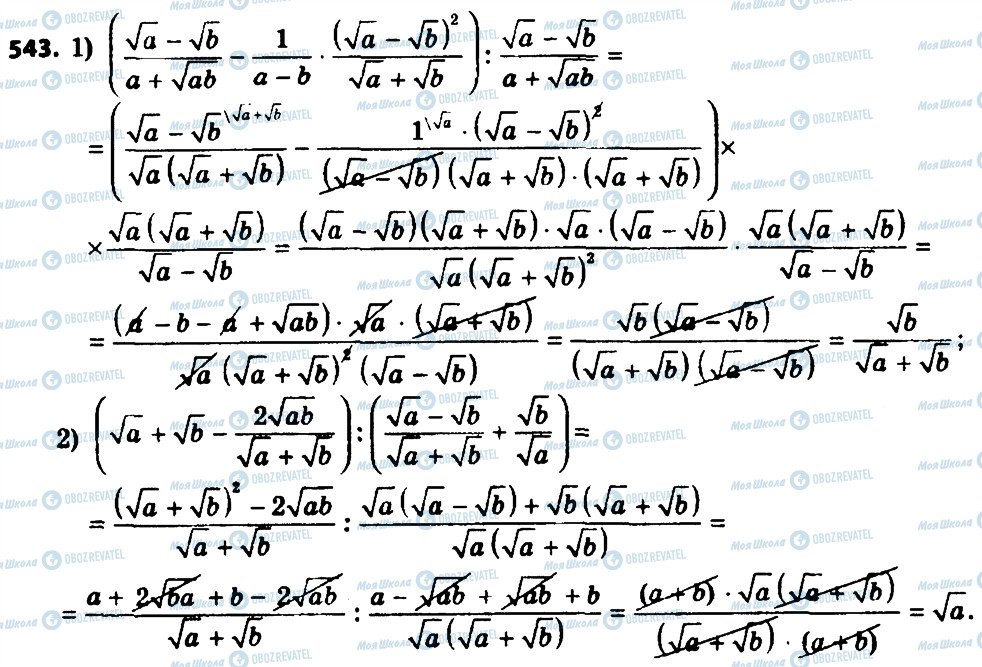 543. 1) ((√a − √b)/(a + √ab) − 1/(a − b) · (√a − √b)²/(√a + √b)) : (√a − √b)/(a + √ab) =
= ((√a − √b^{\√a + √b})/(√a(√a + √b)) − (1^{\√a} · (√a − √b)²)/((√a − √b)(√a + √b) · (√a + √b))) ×
× (√a(√a + √b))/(√a − √b) = ((√a − √b)(√a + √b) · √a · (√a − √b))/(√a(√a + √b)²) · (√a(√a + √b))/(√a − √b) =
= ((a − b − a + √ab) · √a · (√a + √b))/(√a(√a + √b)²(√a − √b)) = (√b(√a − √b))/((√a + √b)(√a − √b)) = √b/(√a + √b);
2) (√a + √b − 2√ab/(√a + √b)) : ((√a − √b)/(√a + √b) + √b/√a) =
= ((√a + √b)² − 2√ab)/(√a + √b) : (√a(√a − √b) + √b(√a + √b))/(√a(√a + √b)) =
= (a + 2√ba + b − 2√ab)/(√a + √b) : (a − √ab + √ab + b)/(√a(√a + √b)) = ((a + b) · √a(√a + √b))/((√a + √b) · (a + b)) = √a.